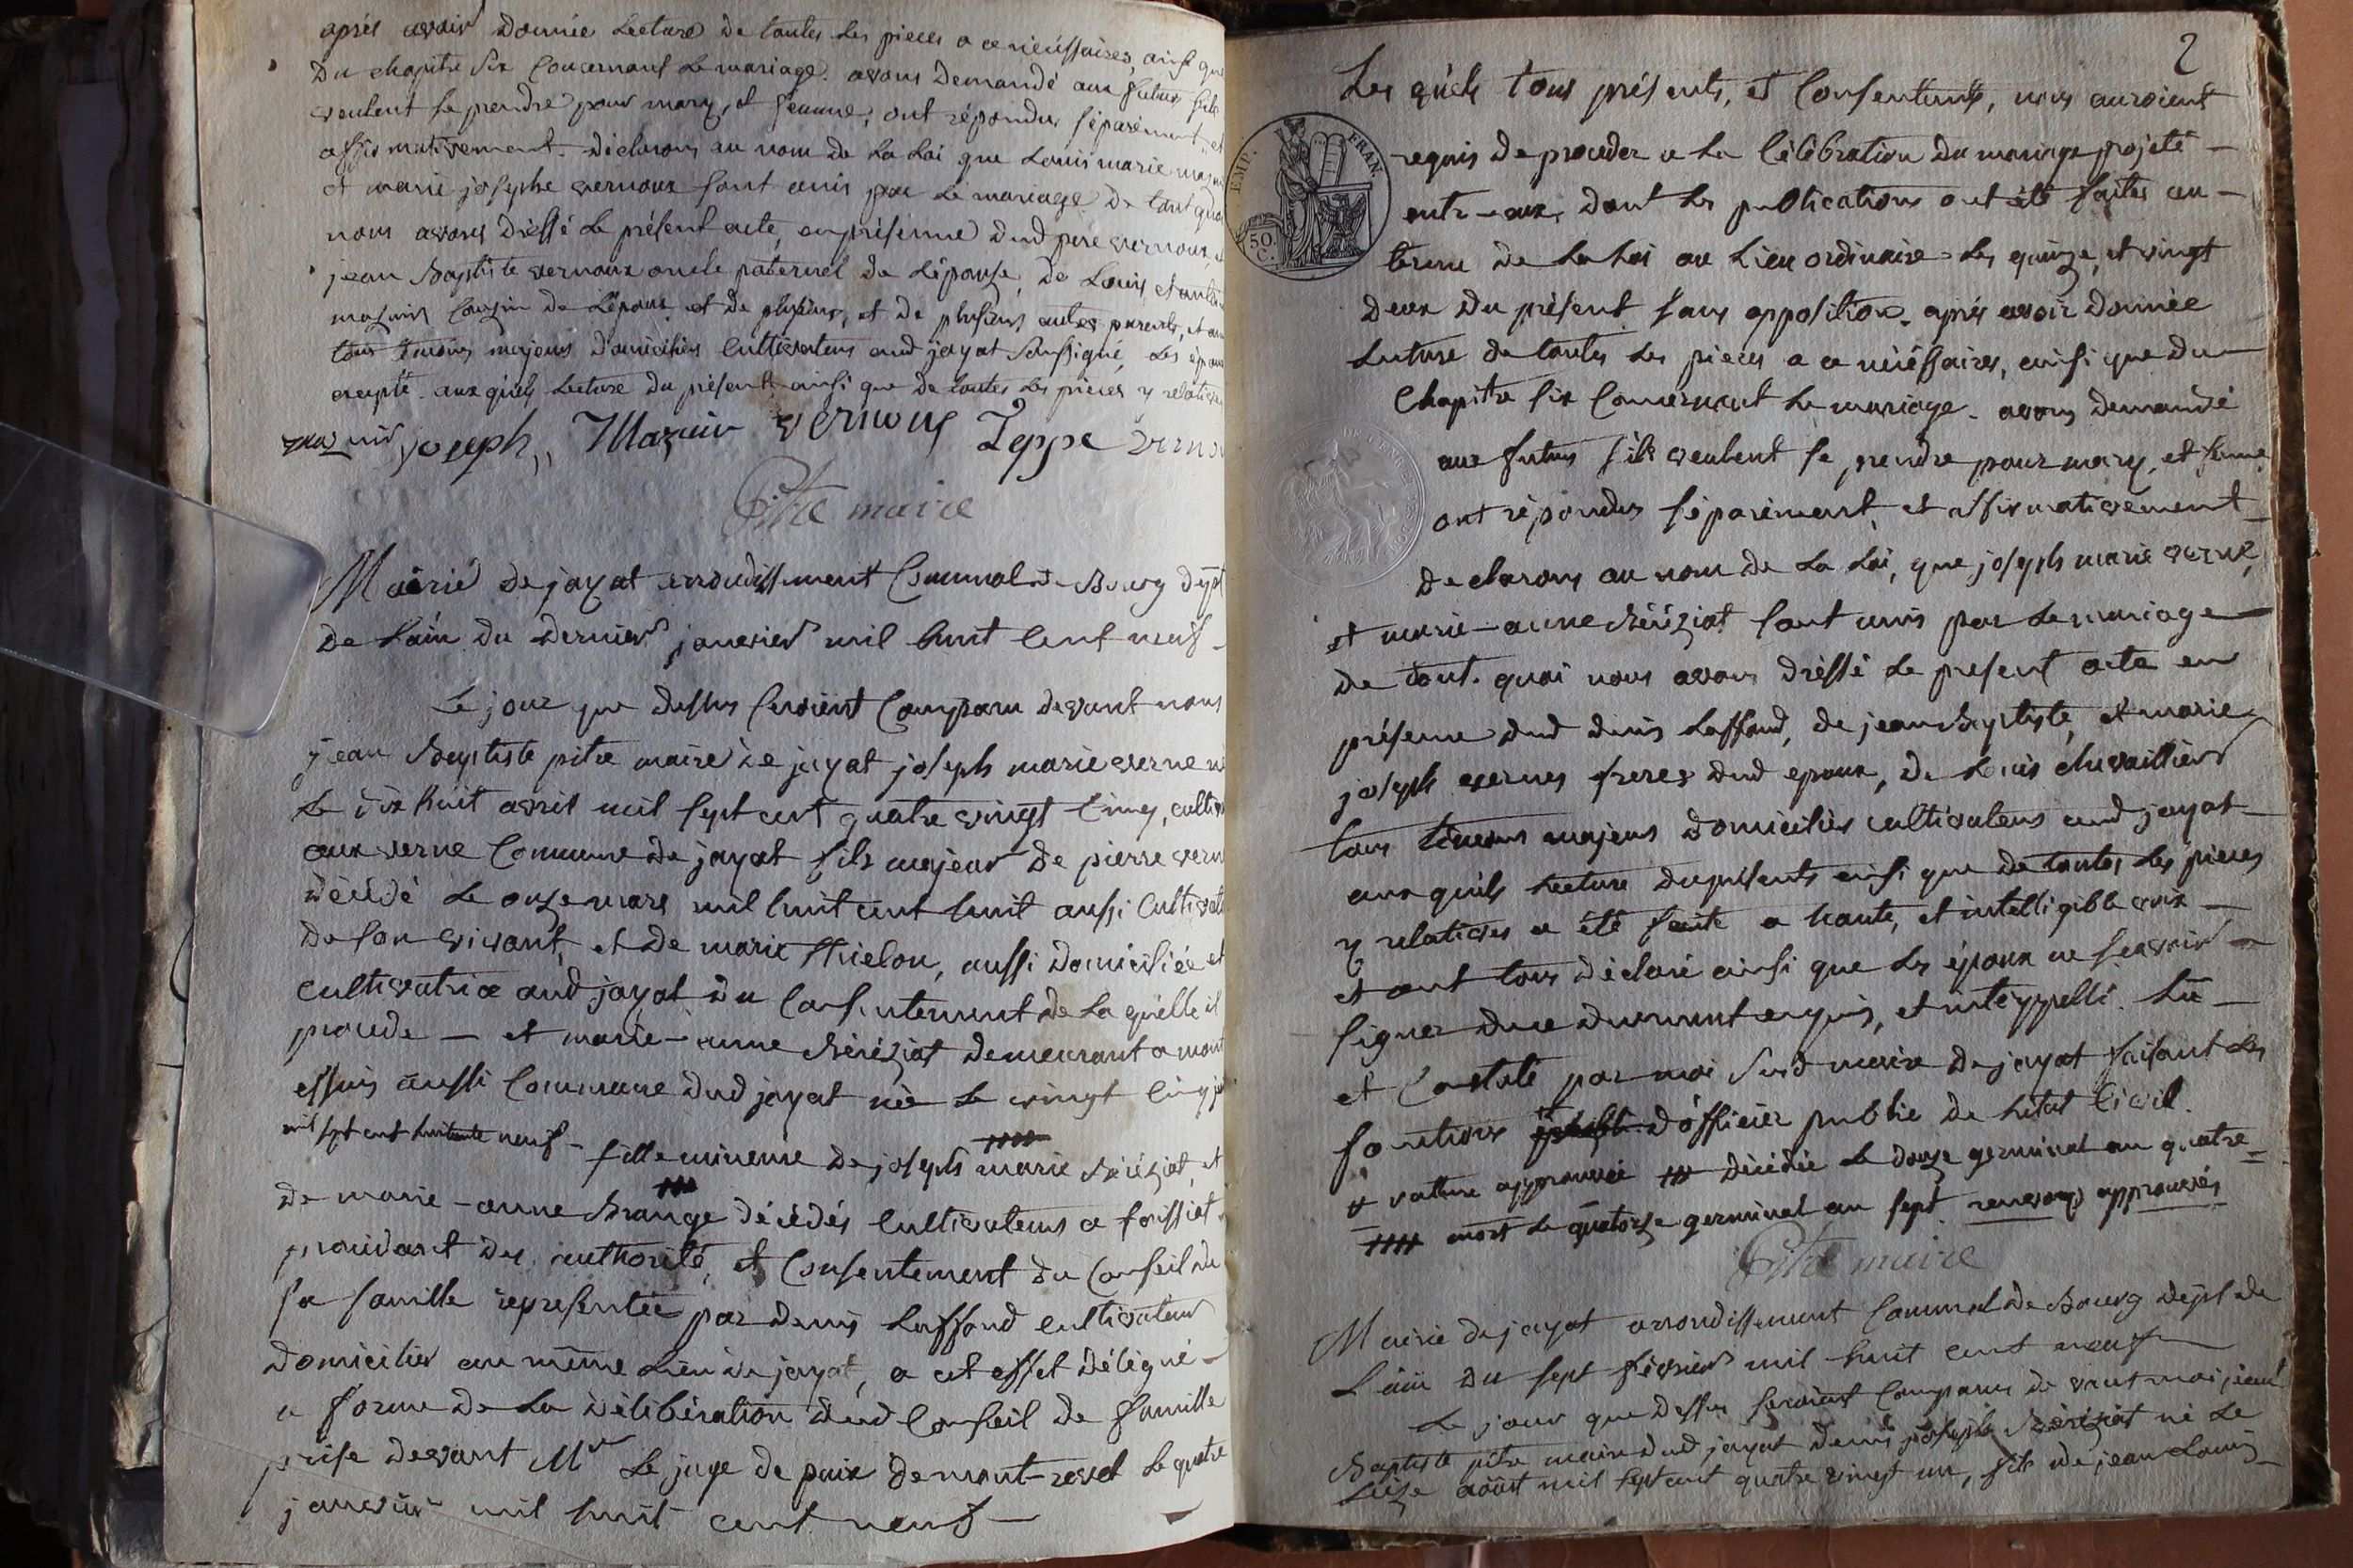 après avoir donnée Lecture de toutes Les pieces a ce nécéssaires, ainsi que
du chapitre six Concernant Le mariage. avons demandé aux futurs s'ils
veulent se prendre pour mary, et femme, ont répondus séparément et
affirmativement. déclarons au nom de La Loi que Louis marie
et marie josephe vernoux sont unis par Le mariage De tout quoi
nous avons dréssé Le présent acte, en présence dud pere vernoux,
jean Baptiste vernoux oncle paternel de L'épouse, de Louis
mazuir Cousin de L'époux, et de plusieurs, et de plusieurs autres parents, et
tous témoins majeurs domiciliés Cultivateurs aud jayat Soussigné, Les époux
excepté. aux quels Lecture du présent ainsi que de toutes Les pièces y relatives
mazuir joseph, Mazuir vernoux Teppe
Pitre maire
Mairie de jayat arrondissement Communal de Bourg dépt
de L'ain du dernier janvier mil huit Cent neuf -
Le jour que dessus Seroient Comparu devant nous
jean Baptiste pitre maire de jayat joseph marie verne
Le dix huit avril mil sept cent quatre vingt Cinq,
aux verne Commune de jayat fils majeur de pierre
décédé Le onze mars mil huit cent huit aussi
de son vivant, et de marie Thielon, aussi domiciliée et
cultivatrice aud jayat du Consentement de La quélle il
procede - et marie-anne Béréziat demeurant a
essuis aussi Commune dud jayat née Le vingt Cinq
mil sept cent huitante neuf - fille mineure de joseph marie Béréziat, et
de marie-anne Brange décédés Cultivateurs a foissiat
procédant des authorité, et Consentement du Conseil de
sa famille représentée par denis Laffond cultivateur
domicilier au même Lieu de jayat, a cet effet délégué
a forme de La délibération dud Conseil de famille
prise devant Mr Le juge de paix de mont-revel Le quatre
janvier mil huit cent neuf -
2
EMP. FRAN.
50. C.
Les quels tous présents, et Consentents, nous auroient
requis de proceder a La Célébration du mariage projeté -
entr-eux, dont Les publications ont été faites au -
terme de La Loi au Lieu ordinaire Les quinze, et vingt
deux du présent sans opposition. après avoir donnée
Lecture de toutes Les pieces a ce nécéssaires, ainsi que du
Chapitre six Concernant Le mariage - avons demandé
aux futurs s'ils veulent se prendre pour mary, et femme,
ont répondus séparément, et affirmativement
declarons au nom de La Loi, que joseph marie verne,
et marie-anne Béréziat sont unis par Le mariage
de tout quoi nous avons dréssé Le present acte en
présence dud denis Laffond, de jean Baptiste, et marie
joseph vernes freres dud epoux, de Louis chevaillier
tous témoins majeurs domiciliés cultivateurs aud jayat
aux quels Lecture du présents ainsi que de toutes Les pieces
y relatives a été faite a haute, et intelligible voix -
et ont tous déclaré ainsi que Les époux ne scavoir
signer de ce duement enquis, et intérppellé. Lu -
et Constaté par moi Susd maire de jayat faisant Les
fonctions d'officier public de L'état Civil.
+ rature approuvée +++ décédée Le douze germinal an quatre
++++ mort Le quatorze germinal an sept renvoys approuvés
Pitre maire
Mairie de jayat arrondissement Communal de Bourg dépt de
L'ain du sept février mil huit cent neuf
Le jour que dessus Seroient Comparus devant moi jean
Baptiste pitre maire dud jayat denis joseph Béréziat né Le
Seize août mil sept cent quatre vingt un, fils de jean Louis